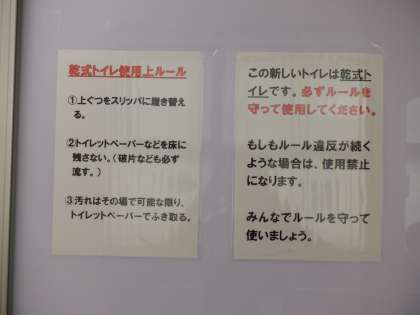 乾式トイレ使用上ルール
①上ぐつをスリッパに履き替え
る。
②トイレットペーパーなどを床に
残さない。(破片なども必ず
流す。)
③汚れはその場で可能な限り、
トイレットペーパーでふき取る。
この新しいトイレは乾式ト
イレです。必ずルールを
守って使用してください。
もしもルール違反が続く
ような場合は、使用禁止
になります。
みんなでルールを守って
使いましょう。